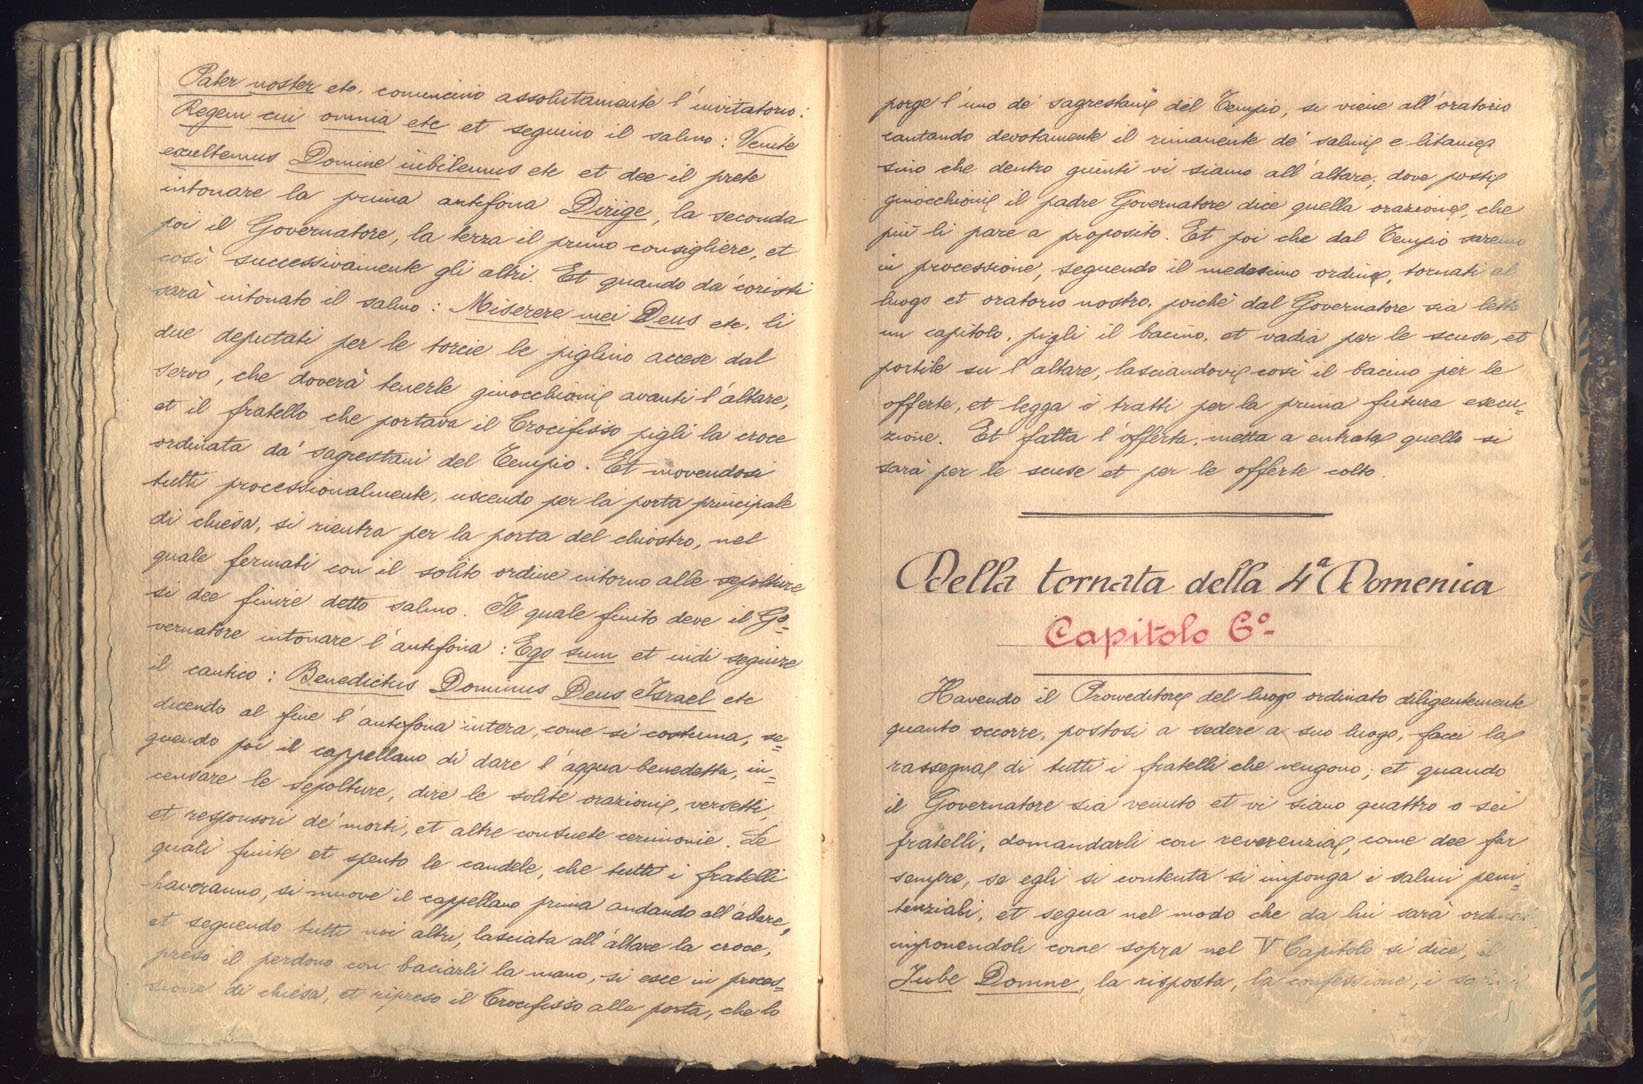 Pater noster etc. comincino assolutamente l'invitatorio:
Regem cui omnia etc et seguino il salmo: Venite
exultemus Domine iubilemus etc et dee il prete
intonare la prima antifona Dirige, la seconda
poi il Governatore, la terza il primo consigliere, et
così successivamente gli altri. Et quando da' coristi
sarà intonato il salmo: Miserere mei Deus etc. li
due deputati per le torcie le piglino accese dal
servo, che doverà tenerle ginocchioni avanti l'altare,
et il fratello che portava il Crocifisso pigli la croce
ordinata da' sagrestani del Tempio. Et movendosi
tutti processionalmente, uscendo per la porta principale
di chiesa, si rientra per la porta del chiostro, nel
quale fermati con il solito ordine intorno alle sepolture
si dee finire detto salmo. Il quale finito deve il Go=
vernatore intonare l'antifona: Ego sum et indi seguire
il cantico: Benedictus Dominus Deus Israel etc
dicendo al fine l'antifona intera, come si costuma, se=
guendo poi il cappellano di dare l'acqua benedetta, in=
censare le sepolture, dire le solite orazioni, versetti,
et responsori de' morti, et altre consuete cerimonie. Le
quali finite et spento le candele, che tutti i fratelli
haveranno, si muove il cappellano prima andando all'altare,
et seguendo tutti noi altri, lasciata all'altare la croce,
preso il perdono con baciarli la mano, si esce in proces=
sione di chiesa, et ripreso il Crocifisso alla porta, che lo
porge l'uno de' sagrestani del Tempio, si viene all'oratorio
cantando devotamente il rimanente de' salmi e litanie
sino che dentro giunti vi siamo all'altare, dove posti
ginocchioni il padre Governatore dice quella orazione, che
più li pare a proposito. Et poi che dal Tempio saremo
in processione, seguendo il medesimo ordine, tornati al
luogo et oratorio nostro, poichè dal Governatore sia letto
un capitolo, pigli il bacino, et vadia per le scuse, et
portile su l'altare, lasciandovi così il bacino per le
offerte, et legga i tratti per la prima futura esecu=
zione. Et fatta l'offerta, metta a entrata quello si
sarà per le scuse et per le offerte colto.
Della tornata della 4ª Domenica
Capitolo 6º-
Havendo il Proveditore del luogo ordinato diligentemente
quanto occorre, postosi a sedere a suo luogo, facci la
rassegna di tutti i fratelli che vengono; et quando
il Governatore sia venuto et vi siano quattro o sei
fratelli, domandarli con reverenzia, come dee far
sempre, se egli si contenta si imponga i salmi peni=
tenziali, et segua nel modo che da lui sarà
imponendoli come sopra nel V Capitolo si dice, il
Jube Domne, la risposta, la confessione, i